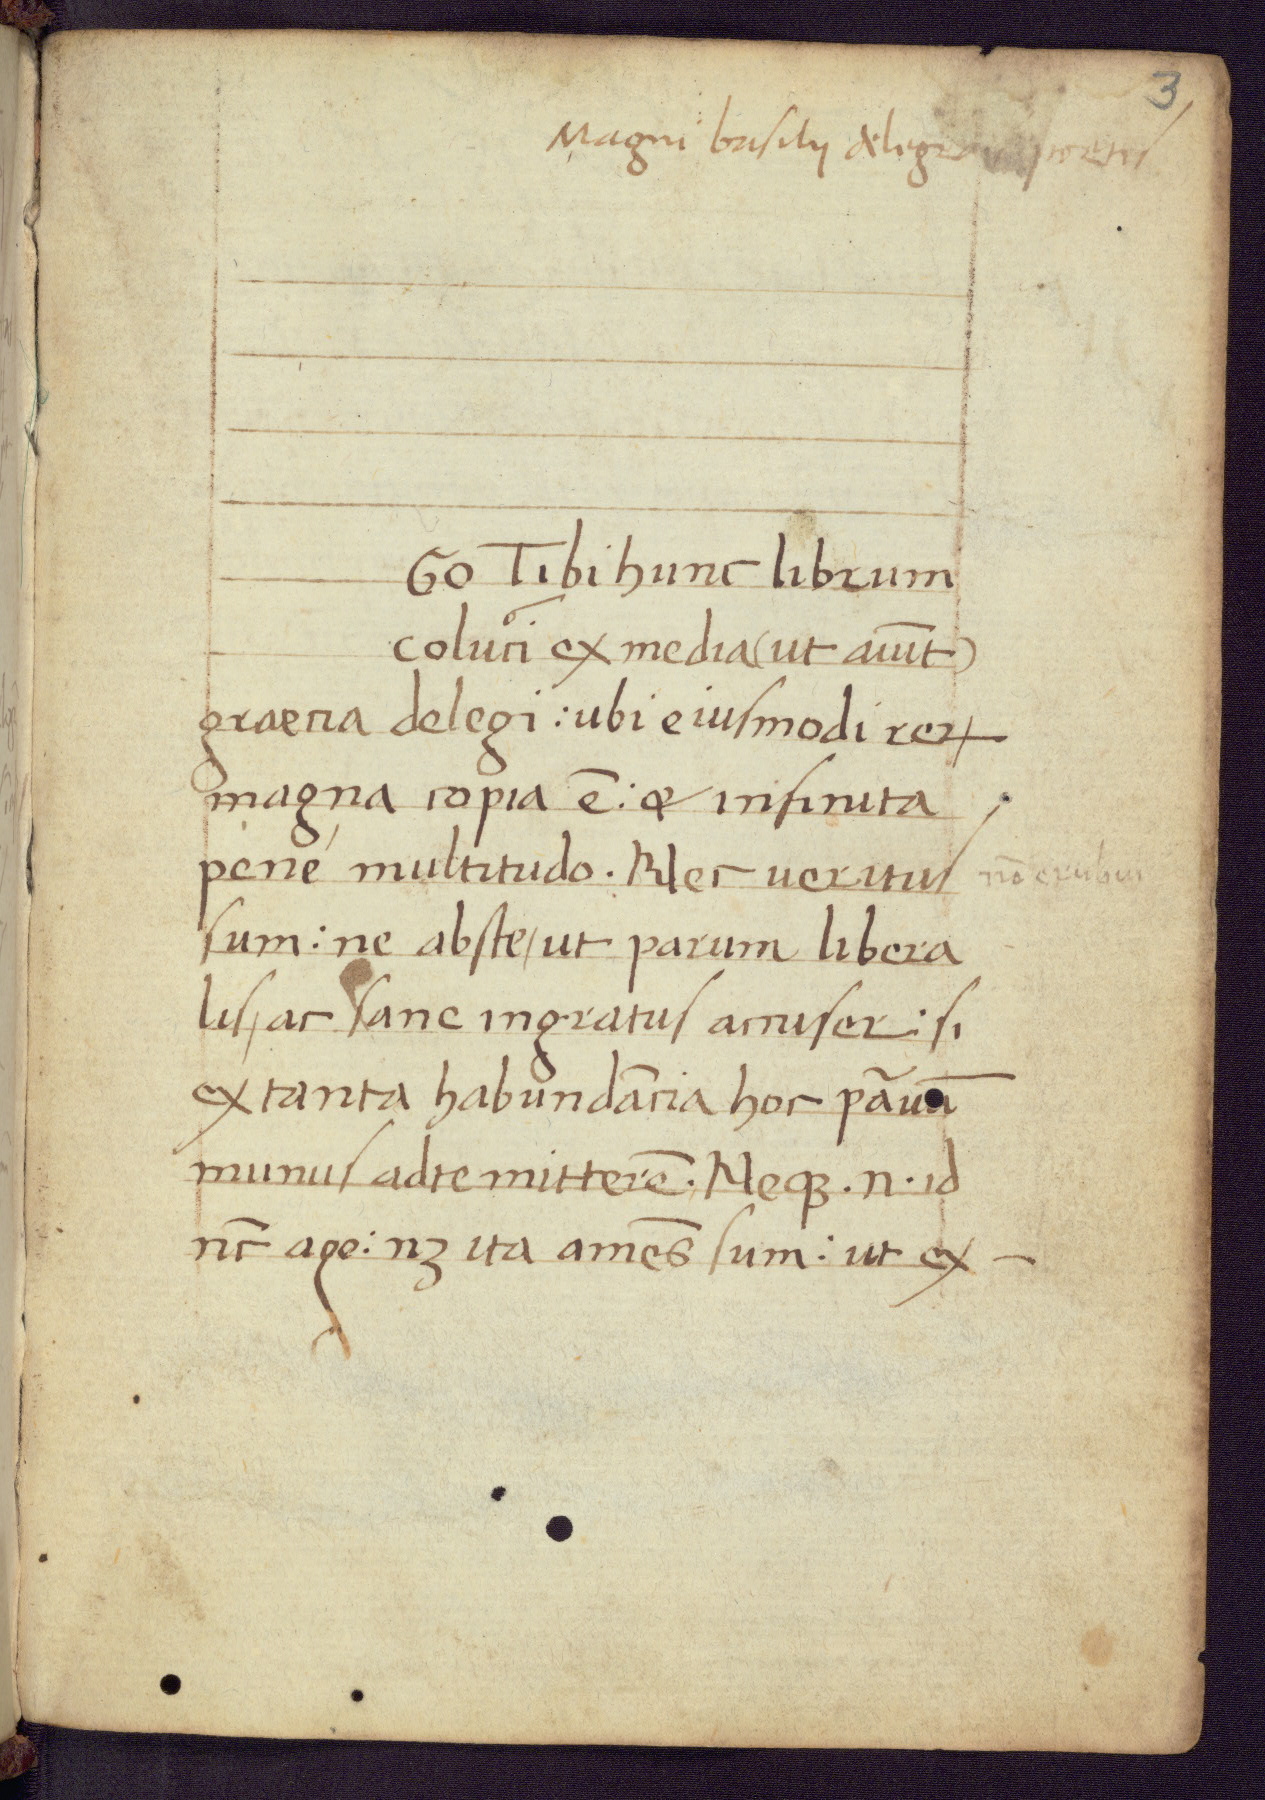 3
Magni basilij de leg
Go Tibi hunc librum
coluci ex media (ut aiūt)
graecia delegi : ubi eiusmodi reꝝ
magna copia ē : & infinita
pené multitudo . Nec ueritus
nō erubui
sum : ne abste / ut parum libera
lis / ac sane ingratus accuser : si
ex tanta habundācia hoc pāuū
munus adte mitterē . Neqꝫ . n . id
nc̄ age : nꝫ ita amēs sum : ut ex